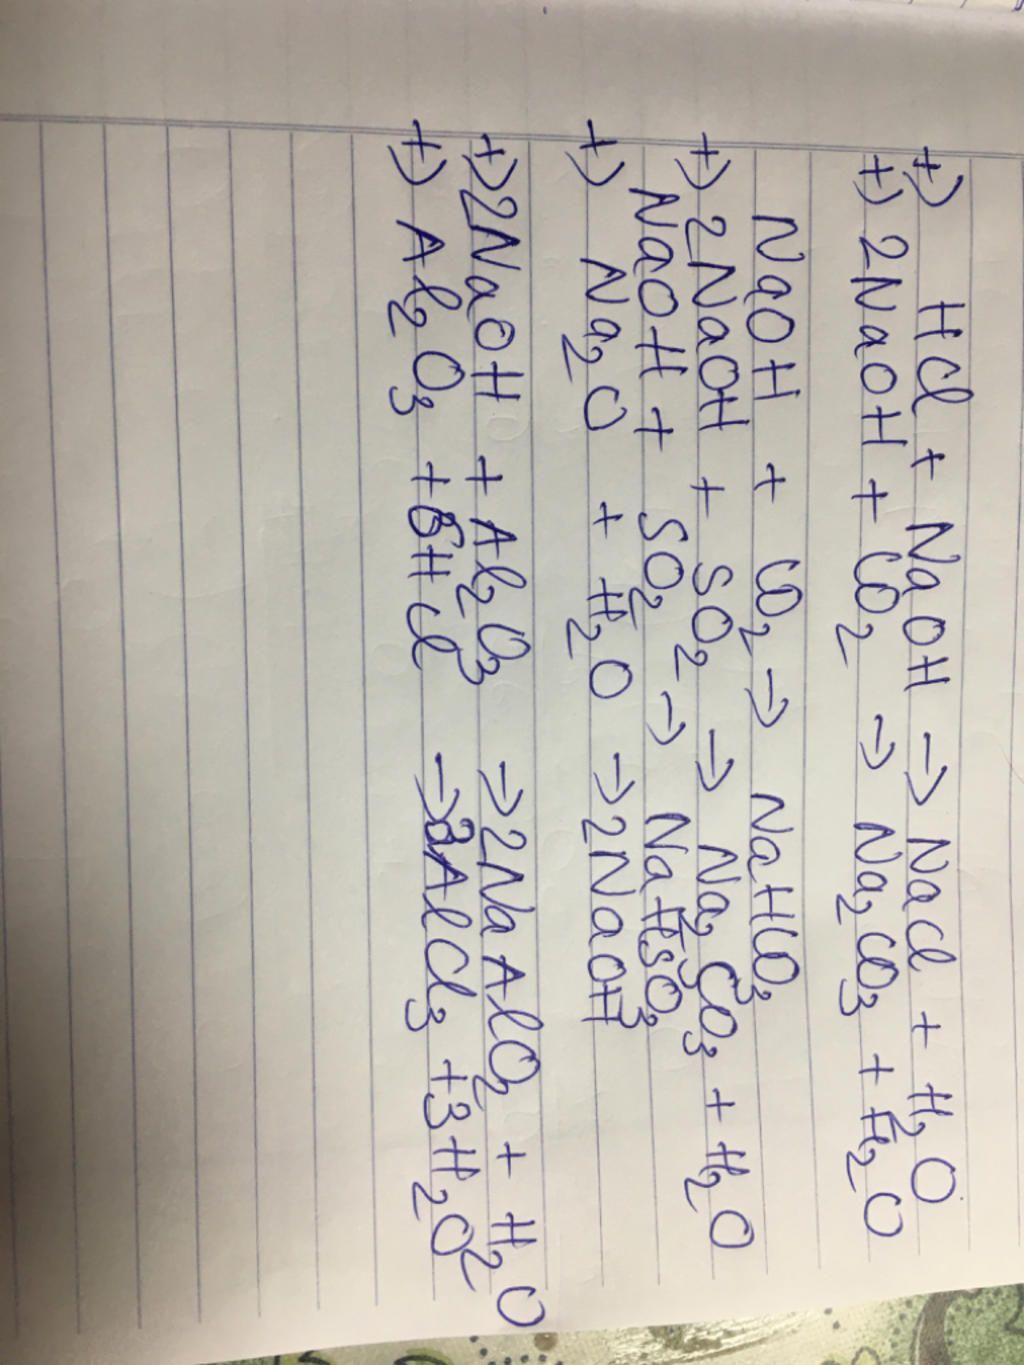 +) HCl + NaOH → NaCl + H₂O
+) 2NaOH + CO₂ → Na₂CO₃ + H₂O
NaOH + CO₂ → NaHCO₃
+) 2NaOH + SO₂ → Na₂CO₃ + H₂O
NaOH + SO₂ → NaHSO₃
+) Na₂O + H₂O → 2NaOH
+) 2NaOH + Al₂O₃ → 2NaAlO₂ + H₂O
+) Al₂O₃ + 6HCl → 2AlCl₃ + 3H₂O